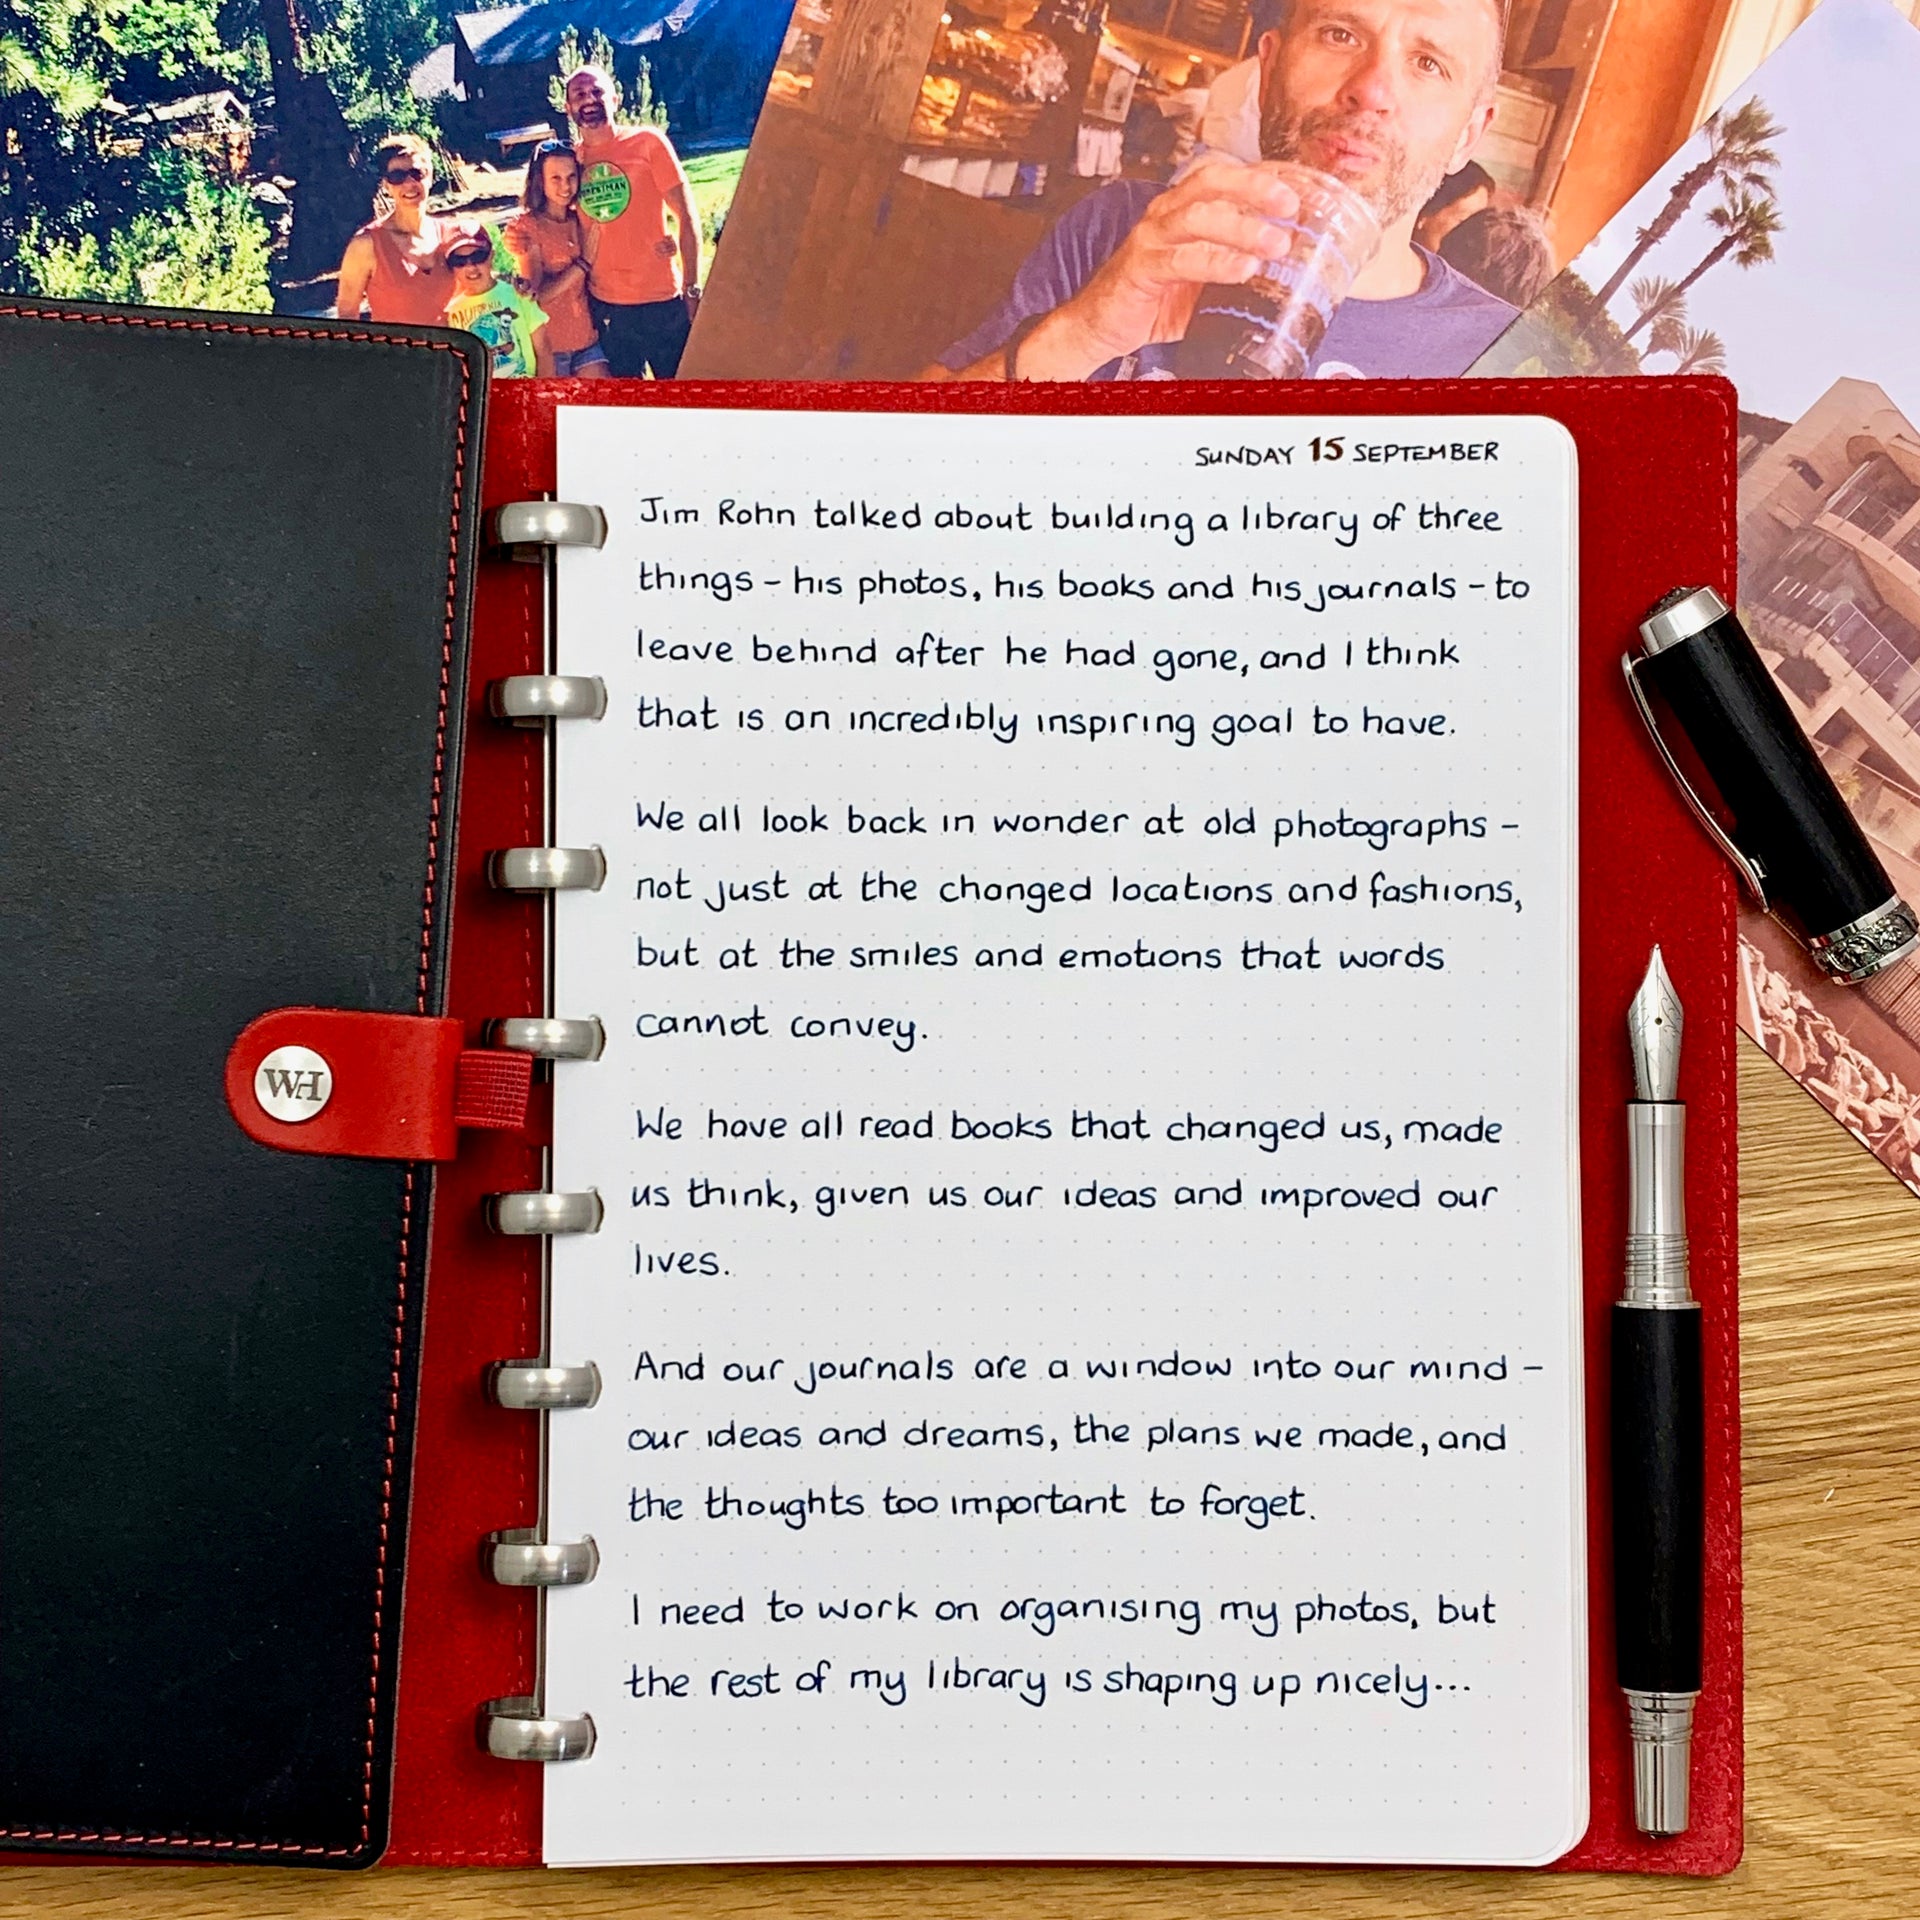 SUNDAY 15 SEPTEMBER
Jim Rohn talked about building a library of three
things - his photos, his books and his journals - to
leave behind after he had gone, and I think
that is an incredibly inspiring goal to have.
We all look back in wonder at old photographs -
not just at the changed locations and fashions,
but at the smiles and emotions that words
cannot convey.
We have all read books that changed us, made
us think, given us our ideas and improved our
lives.
And our journals are a window into our mind -
our ideas and dreams, the plans we made, and
the thoughts too important to forget.
I need to work on organising my photos, but
the rest of my library is shaping up nicely...
WH
CALIFORNIA